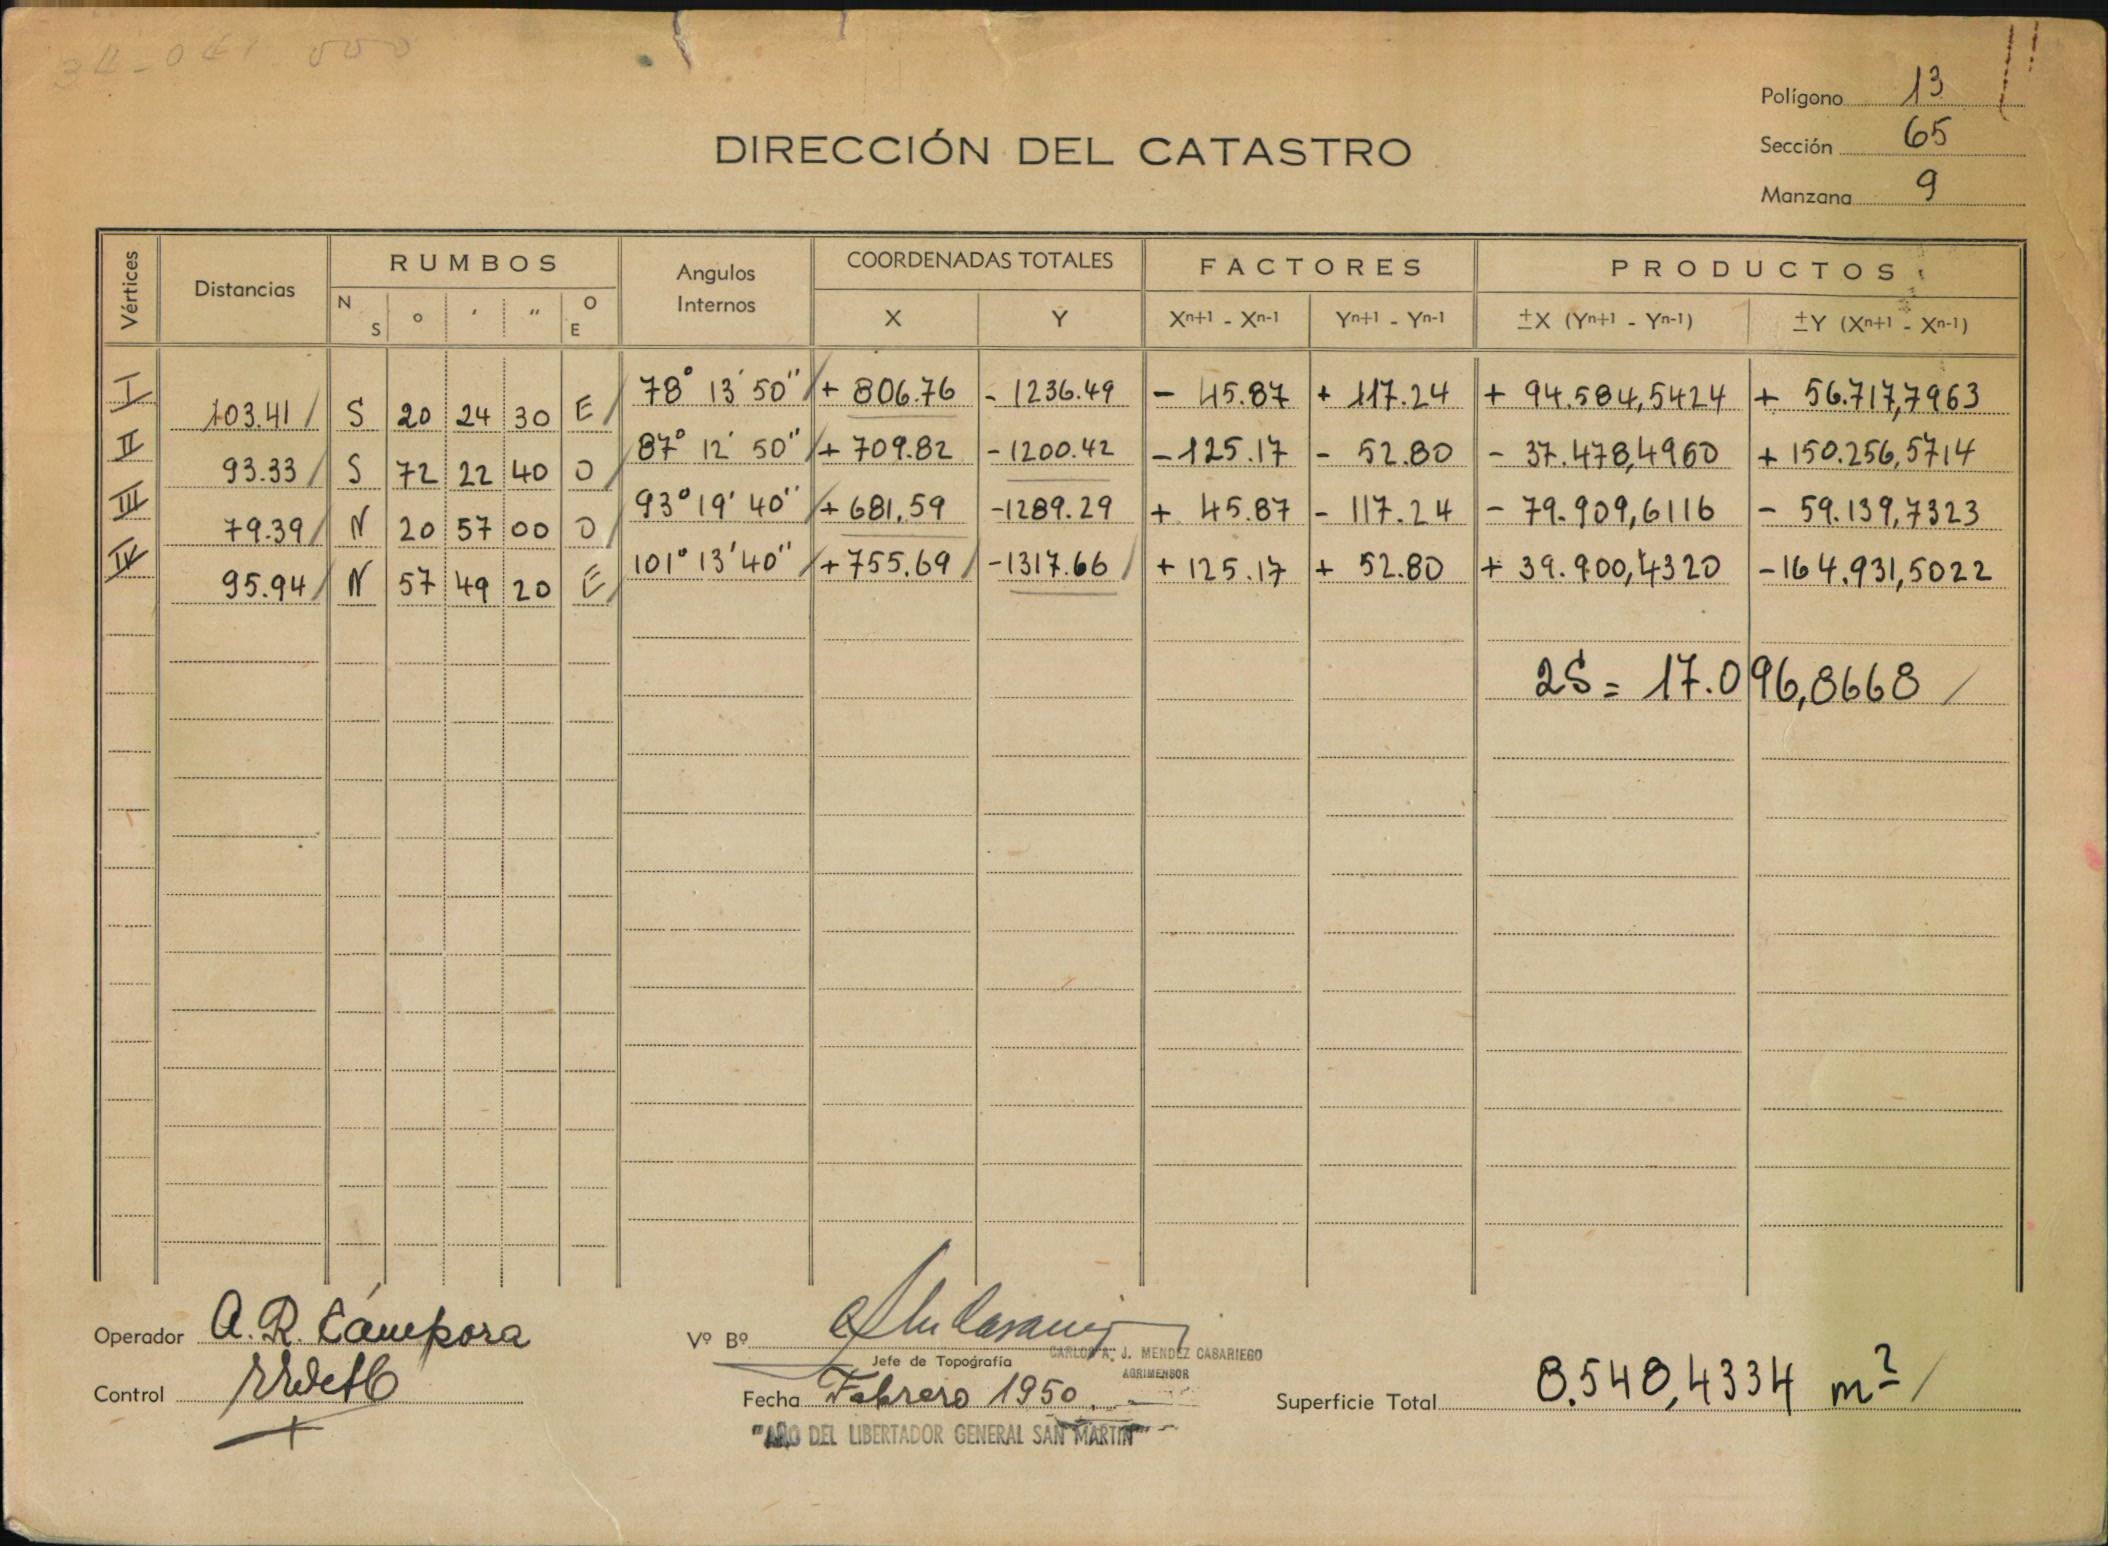 34-041.000
Polígono 13
Sección 65
Manzana 9
DIRECCIÓN DEL CATASTRO
Vértices Distancias RUMBOS Angulos Internos COORDENADAS TOTALES FACTORES PRODUCTOS
N S ° ′ ″ O E X Y Xn+1 - Xn-1 Yn+1 - Yn-1 ±X (Yn+1 - Yn-1) ±Y (Xn+1 - Xn-1)
I 78° 13′ 50″ + 806.76 - 1236.49 - 45.87 + 117.24 + 94.584,5424 + 56.717,7963
103.41 S 20 24 30 E
II 87° 12′ 50″ + 709.82 - 1200.42 - 125.17 - 52.80 - 37.478,4960 + 150.256,5714
93.33 S 72 22 40 O
III 93° 19′ 40″ + 681.59 - 1289.29 + 45.87 - 117.24 - 79.909,6116 - 59.139,7323
79.39 N 20 57 00 O
IV 101° 13′ 40″ + 755.69 - 1317.66 + 125.17 + 52.80 + 39.900,4320 - 164.931,5022
95.94 N 57 49 20 E
2S = 17.096,8668
Operador A. R. Cámpora
Vº Bº
Jefe de Topografía
CARLOS A. J. MENDEZ CASARIEGO
AGRIMENSOR
Control
Fecha Febrero 1950.
Superficie Total 8.548,4334 m²
"AÑO DEL LIBERTADOR GENERAL SAN MARTIN"